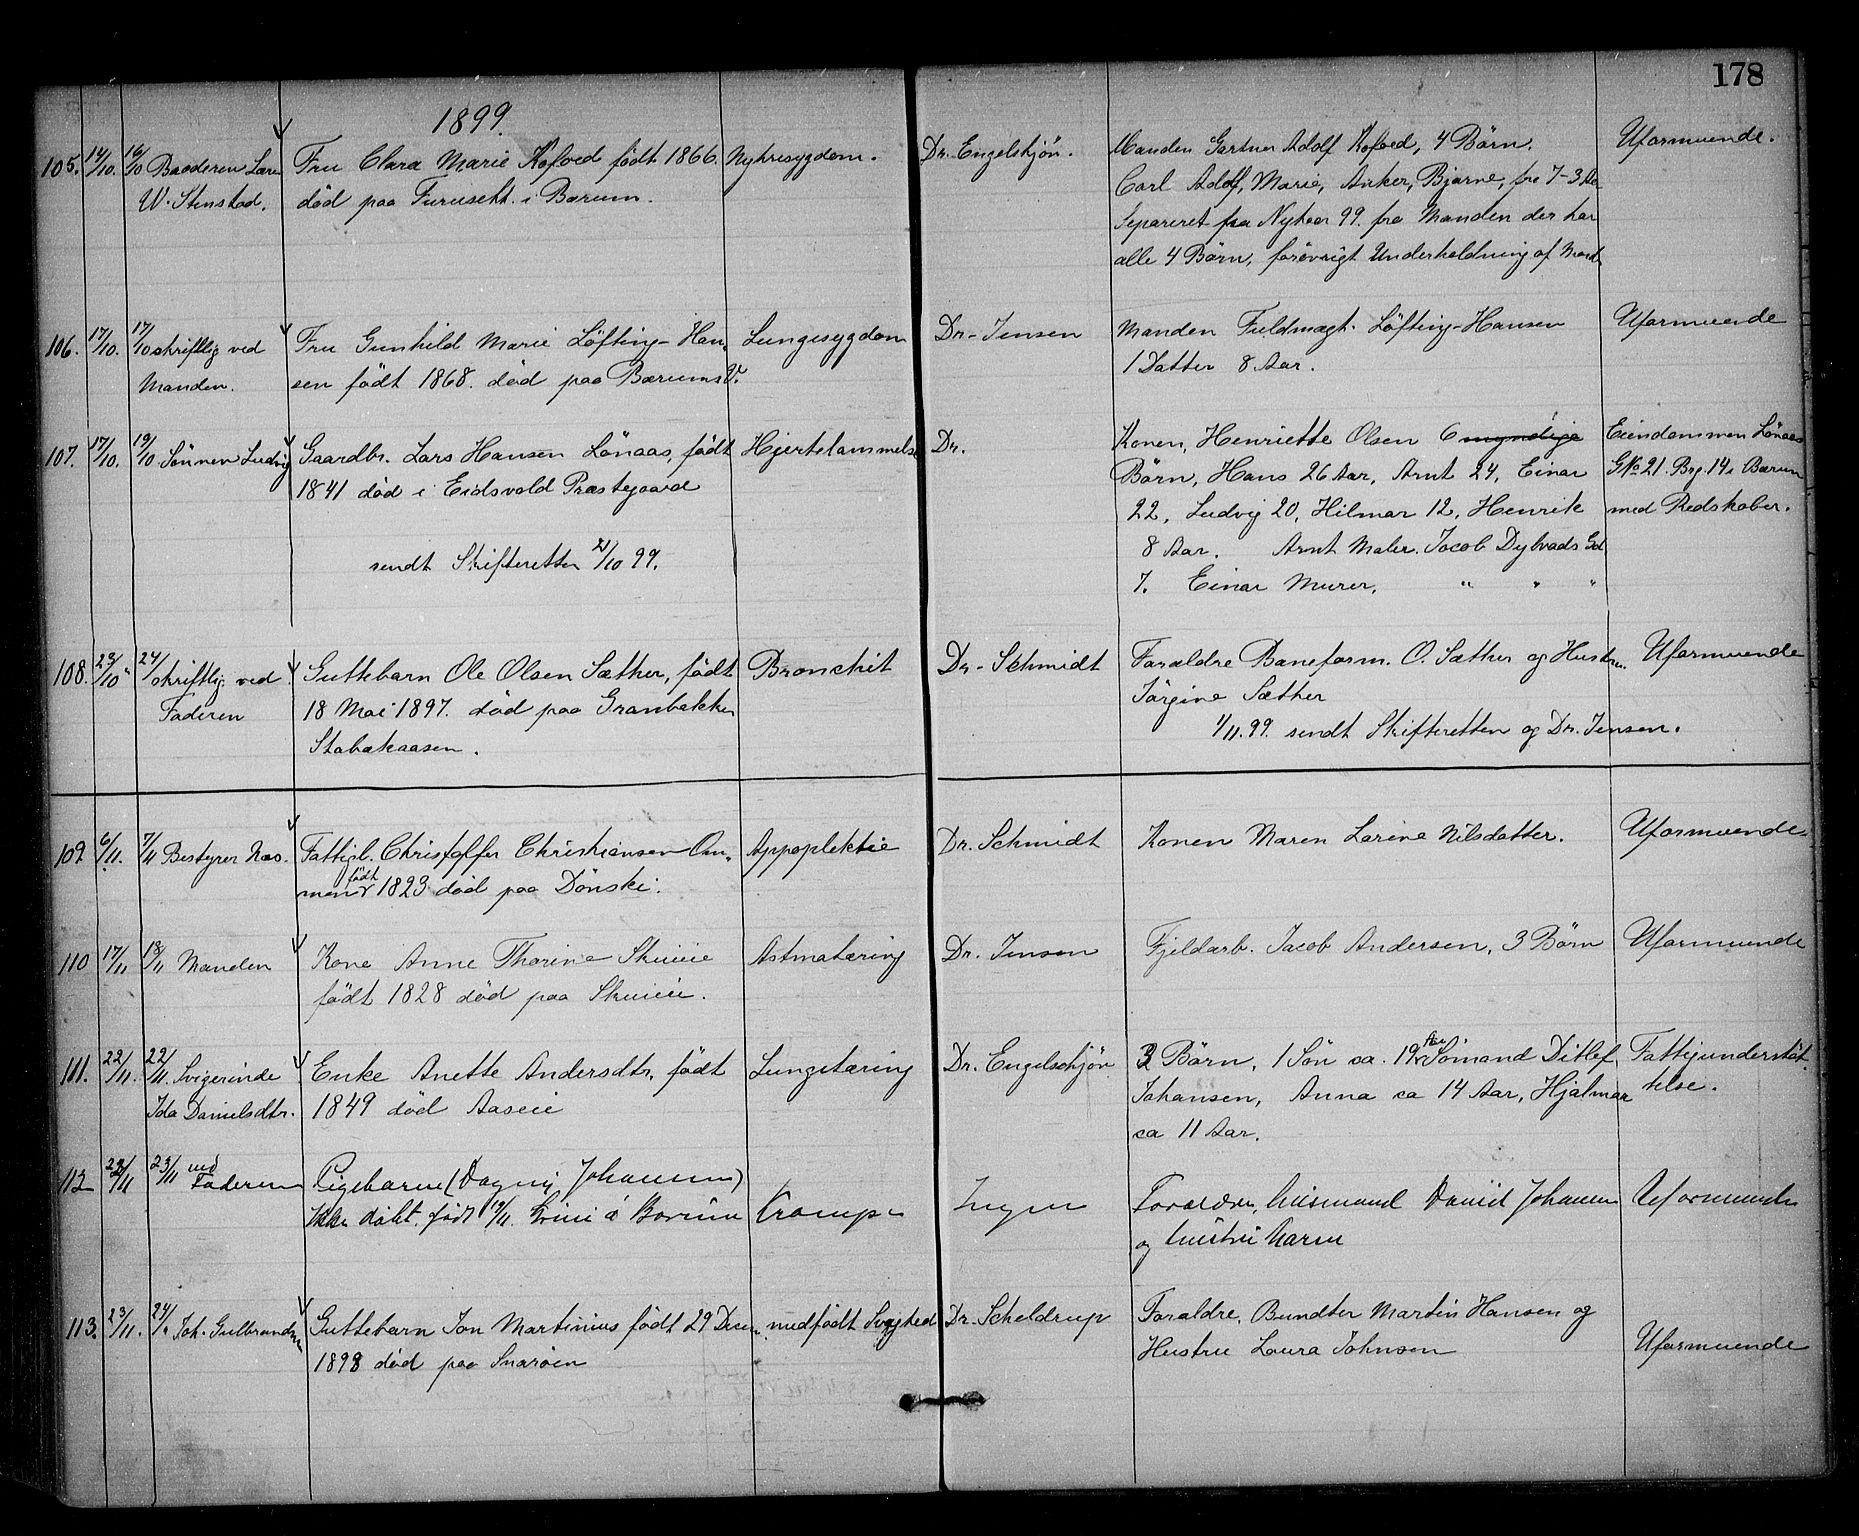 178
1899.
105. 14/10. 16/10 Broderen Lars Fru Clara Marie Kofoed født 1866. Nyresygdom. Dr. Engelskjøn. Manden Gartner Adolf Kofoed, 4 Børn. Uformuende.
W. Stenstad. død paa Furusett. i Bærum. Carl Adolf, Marie, Anker, Bjarne, fra 7-3 Aar
Separeret fra Nyttaar 99. fra Manden der har
alle 4 Børn, forøvrigt Underholdning af Mand
106. 17/10. 17/10 skriftlig ved Fru Gunhild Marie Løfting-Han- Lungesygdom Dr. Jensen Manden Fuldmægt. Løfting-Hansen Uformuende
Manden. sen født 1868. død paa Bærums V. 1 Datter 8 Aar.
107. 17/10. 19/10 Sønnen Ludvig Gaardbr. Lars Hansen Lønaas, født Hjertelammelse Dr. Konen, Henriette Olsen 6 myndige Eiendommen Lønaas
1841 død i Eidsvold Præstegaard Børn, Hans 26 Aar, Arnt 24, Einar GNo 21. Brg. 14 i Bærum
22, Ludvig 20, Hilmar 12, Henrik med Redskaber.
sendt Skifteretten 21/10 99. 8 Aar. Arnt Maler. Jacob Dybvads Gd
7. Einar Murer, " " "
108. 23/10 24/ skriftlig ved Guttebarn Ole Olsen Sæther, født Bronchit Dr. Schmidt Forældre Baneform. O. Sæther og Hustru Uformuende
Faderen 18 Mai 1897. død paa Granbakken Jørgine Sæther
Stabækaasen. 1/11.99. sendt Skifteretten og Dr. Jensen.
109. 6/11. 7/11 Bestyrer Næs. Fattigl. Christoffer Christiansen Om- Appoplektie Dr. Schmidt Konen Maren Larine Nilsdatter. Uformuende
født 1823 død paa Dønski.
110 17/11 18/11 Manden Kone Anne Thorine Skuiie Astmatæring Dr. Jensen Fjeldarb. Jacob Andersen, 3 Børn Uformuende
født 1828 død paa Skuiie.
111. 22/11. 22/11. Svigerinde Enke Anette Andersdtr, født Lungetæring Dr. Engelschjøn 3 Børn, 1 Søn ca. 19 Aar Sømand Ditlef Fattigunderstøt-
Ida Danielsdtr. 1849 død Aaseie Johansen, Anna ca 14 Aar, Hjalmar telse.
ca 11 Aar.
112 22/11 23/11 ved Faderen Pigebarn (Dagny Johansen) Krampe Ingen Forældre, Husmand David Johansen Uformuende
Ikke døbt. født 19/11. Grini i Bærum og hustru Karen
113. 23/11. 24/" Joh. Gulbrandsen Guttebarn Jon Martinius født 29 Decem. medfødt Svaghed Dr. Scheldrup Forældre, Bundter Martin Hansen og
1898 død paa Snarøen Hustru Laura Johnsen Uformuende